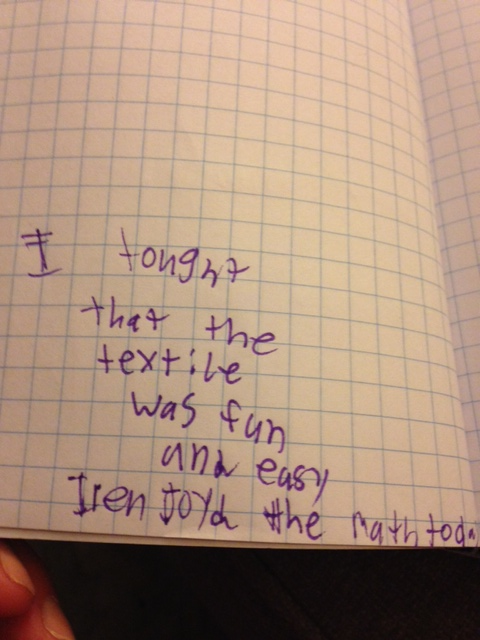 I tought
that the
textile
was fun
and easy
I enjoyd the math toda